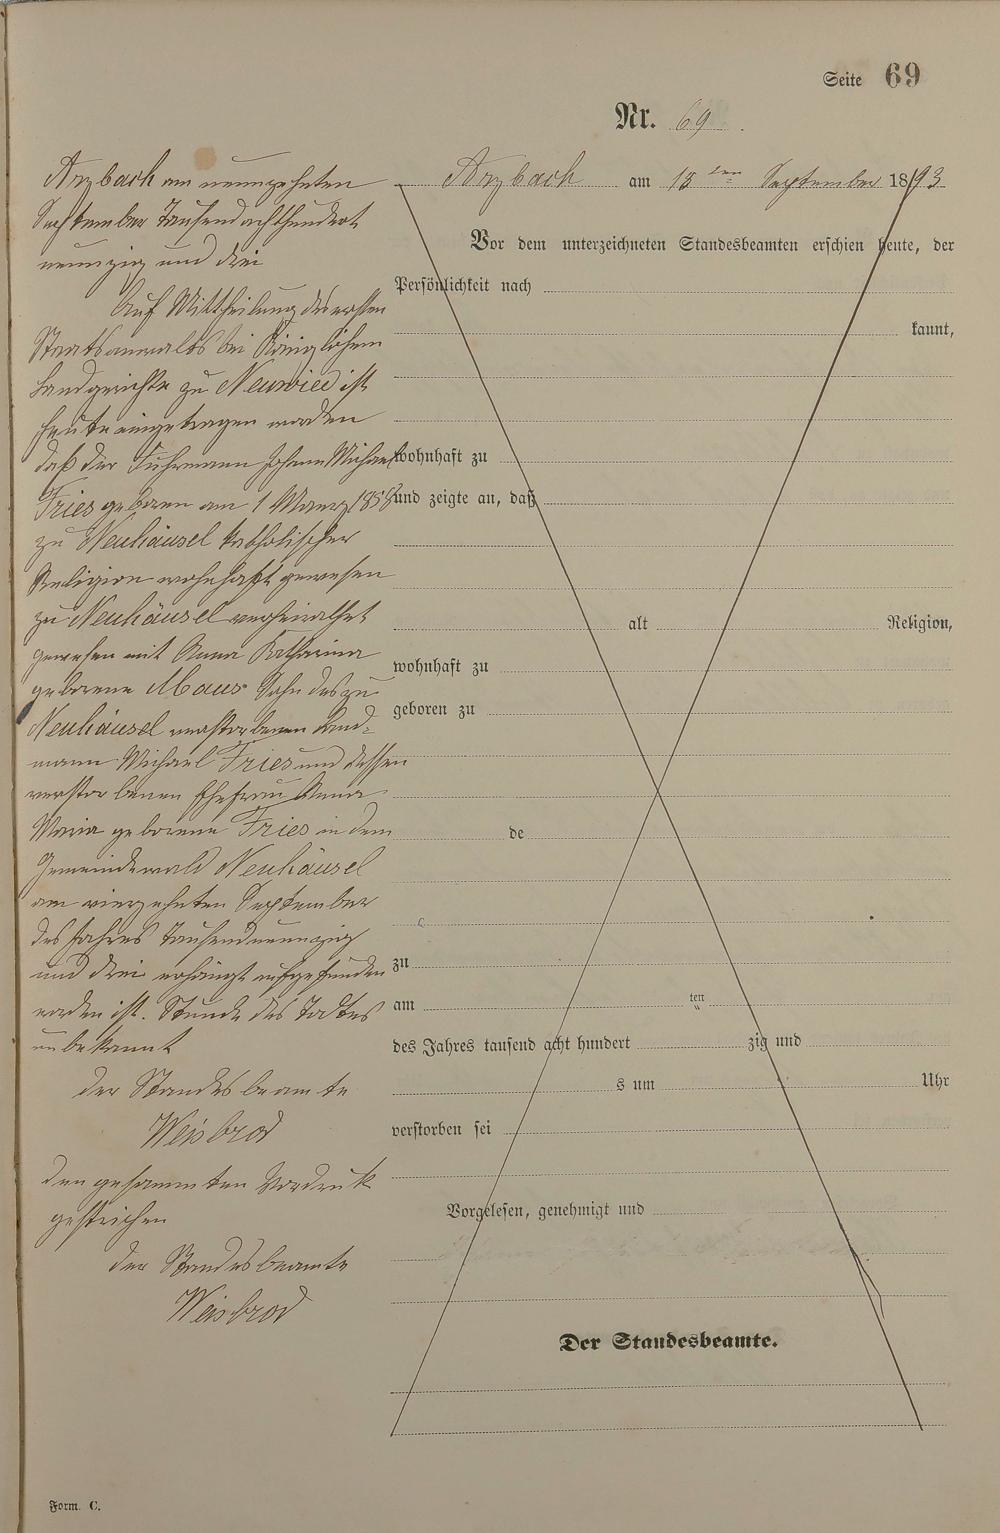 Seite 69
Nr. 69.
Arzbach am 18ten September 1893
Vor dem unterzeichneten Standesbeamten erschien heute, der
Persönlichkeit nach
kannt,
wohnhaft zu
und zeigte an, daß
alt Religion,
wohnhaft zu
geboren zu
de
zu
am ten
des Jahres tausend acht hundert zig und
s um Uhr
verstorben sei
Vorgelesen, genehmigt und
Der Standesbeamte.
Arzbach am neunzehnten
September Tausendachthundert
neunzig und drei
Auf Mittheilung des ersten
Staatsanwalts bei Königlichem
Landgerichte zu Neuwied ist
heute eingetragen worden
daß der Fuhrmann Johann Michael
Fries geboren am 1 Maerz 1858
zu Neuhäusel katholischer
Religion wohnhaft gewesen
zu Neuhäusel verheirathet
gewesen mit Anna Katharina
geborene Maus Sohn des zu
Neuhäusel verstorbenen Land-
mann Michael Fries und dessen
verstorbenen Ehefrau Anna
Maria geborene Fries in dem
Gemeindewald Neuhäusel
am vierzehnten September
des Jahres Tausendneunzig
und drei erhängt aufgefunden
worden ist. Stunde des Todtes
unbekannt
der Standesbeamte
Weisbrod
den gesammten Vordruk
gestrichen
der Standesbeamte
Weisbrod
Form. C.